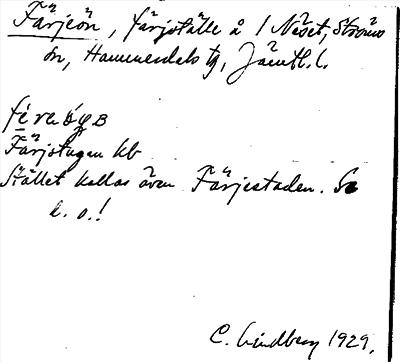 Färjeön, färjställe å 1 Näset, Ströms
ön, Hammerdals tg, Jämtl.l.
Färjstugan kb
Stället kallas även Färjestaden. Se
d. o.!
C. Lindberg 1929.